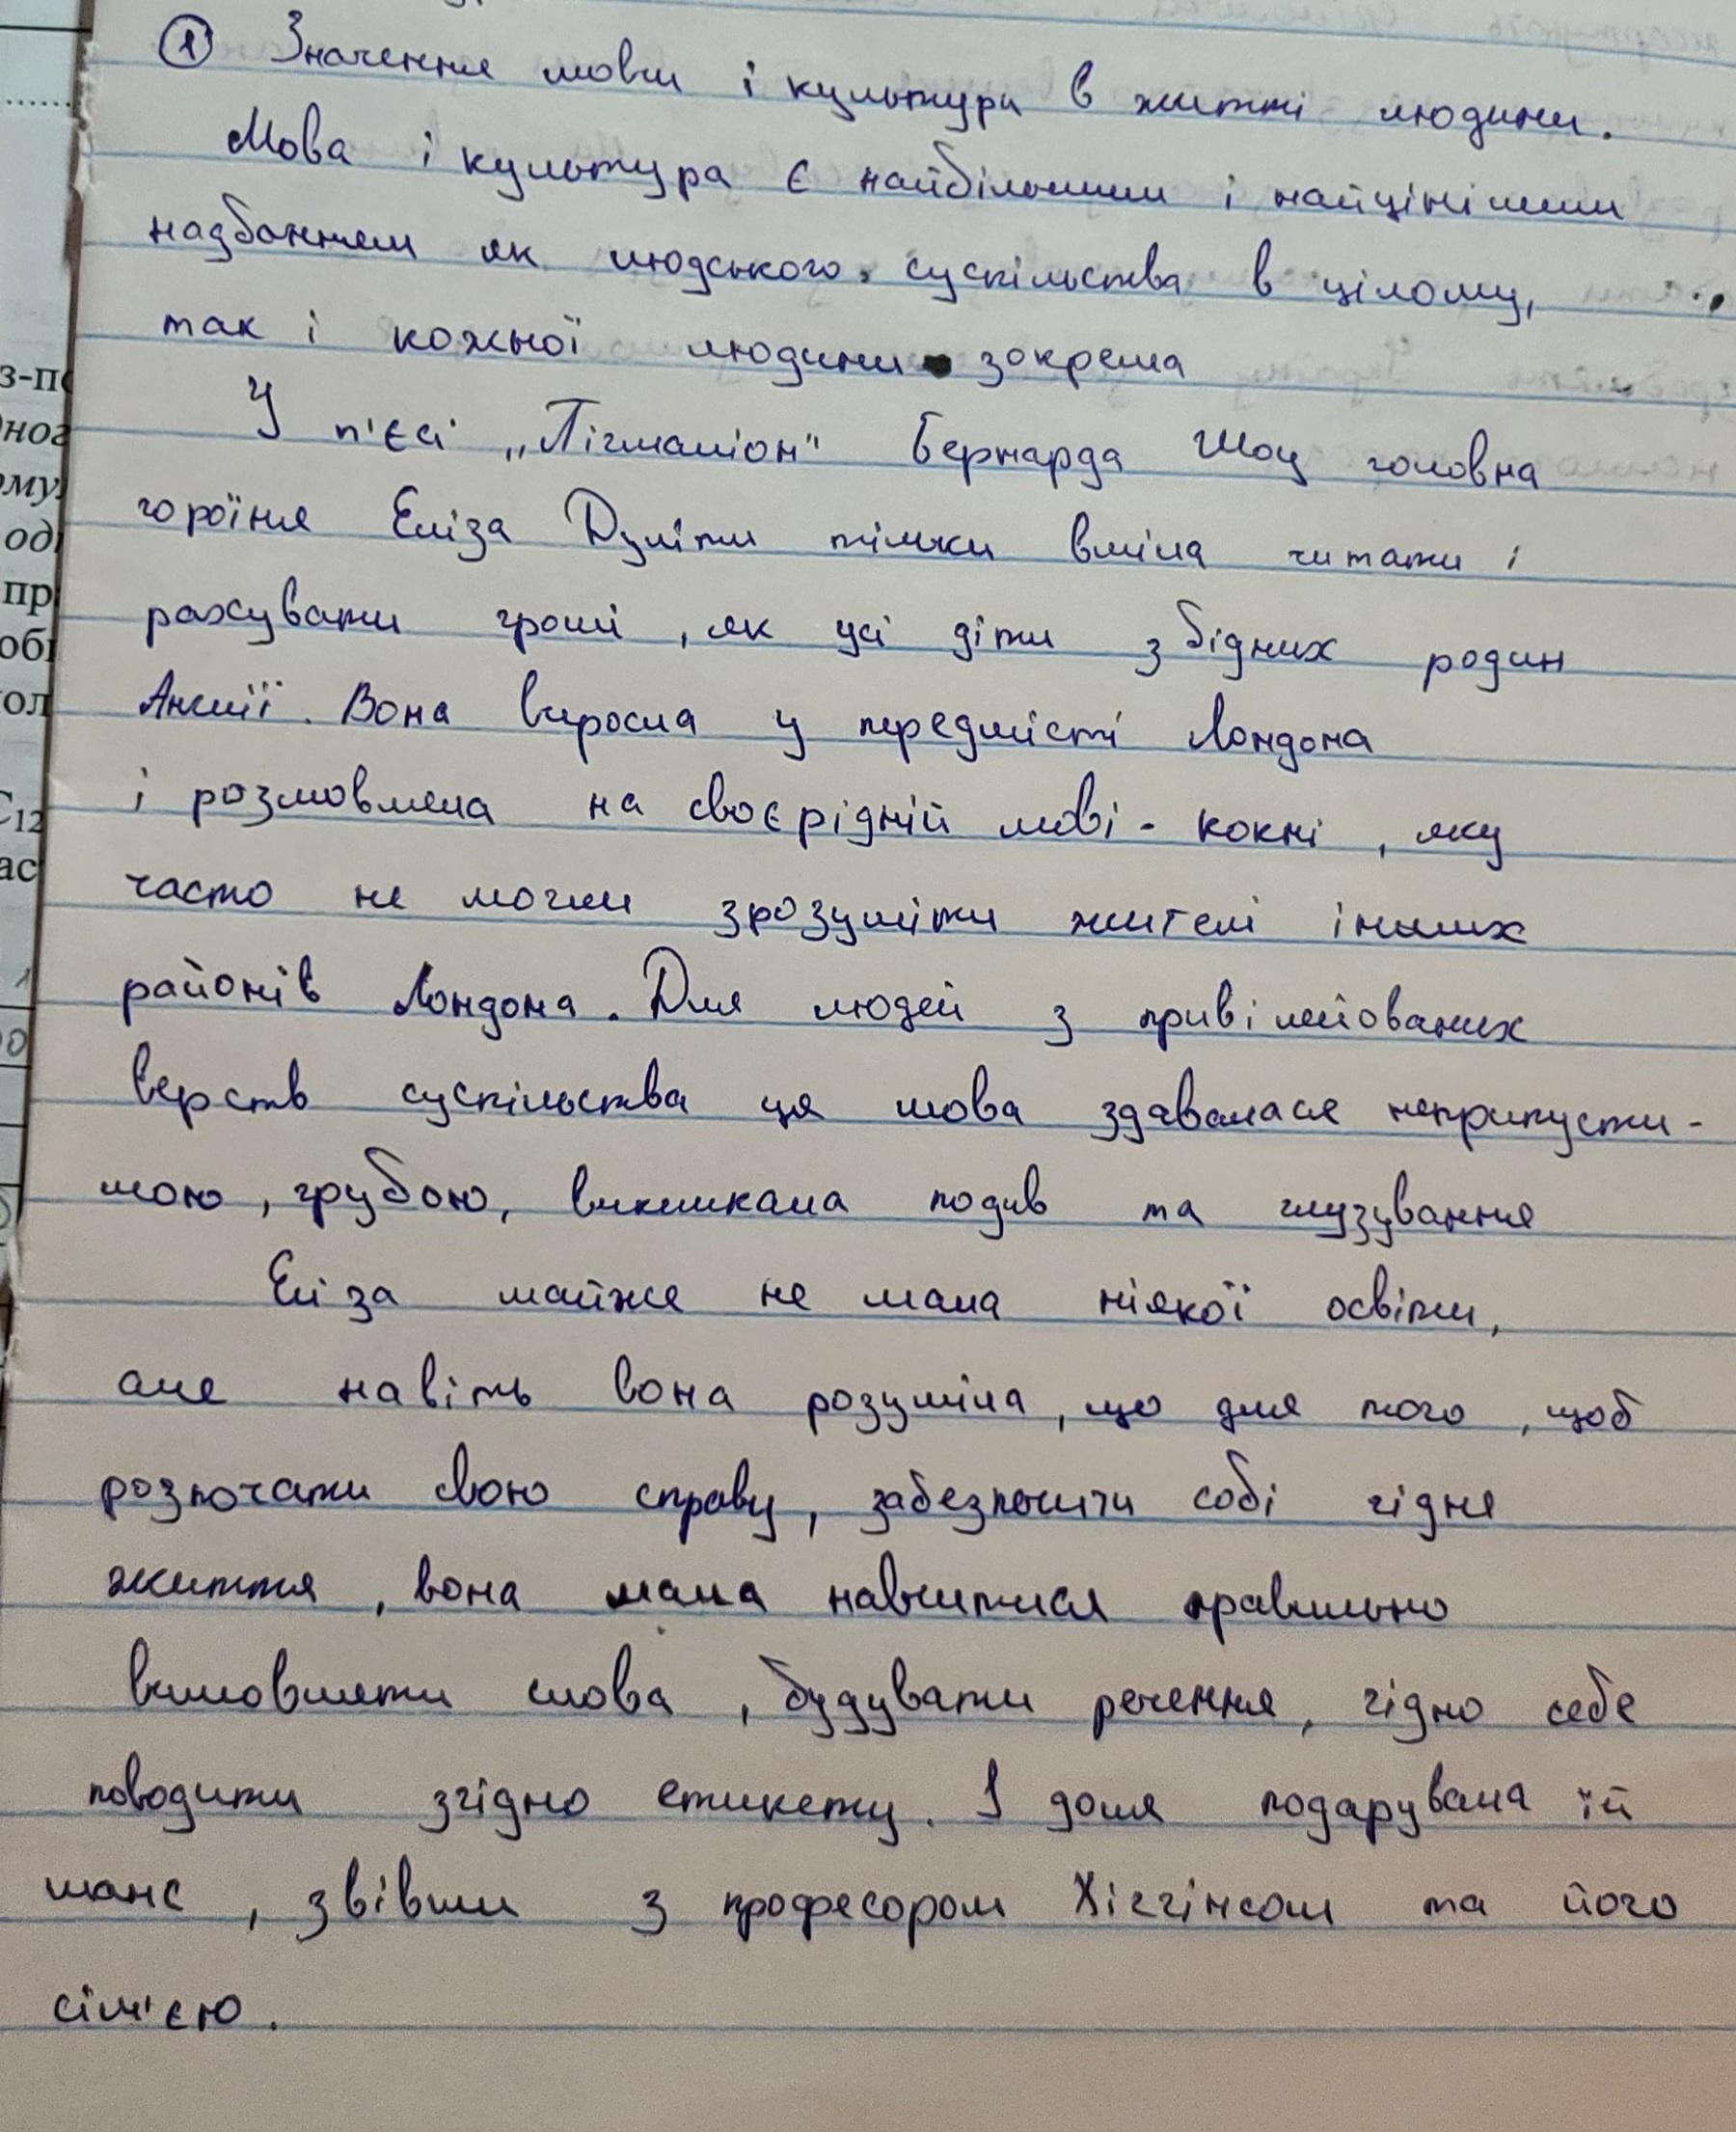 ① Значення мови і культури в житті людини.
Мова і культура є найбільшим і найціннішим
надбанням як людського суспільства в цілому,
так і кожної людини зокрема
У п'єсі „Пігмаліон" Бернарда Шоу головна
героїня Еліза Дуліти тільки вміла читати і
рахувати гроші, як усі діти з бідних родин
Англії. Вона виросла у передмісті Лондона
і розмовляла на своєрідній мові - кокні, яку
часто не могли зрозуміти жителі інших
районів Лондона. Для людей з привілейованих
верств суспільства ця мова здавалася неприпусти-
мою, грубою, викликала подив та глузування
Еліза майже не мала ніякої освіти,
але навіть вона розуміла, що для того, щоб
розпочати свою справу, забезпечити собі гідне
життя, вона мала навчитися правильно
вимовляти слова, будувати речення, гідно себе
поводити згідно етикету. І доля подарувала їй
шанс, звівши з професором Хіггінсом та його
сім'єю.
з-по
ног
ому
од
пр
об
ол
C12
ас